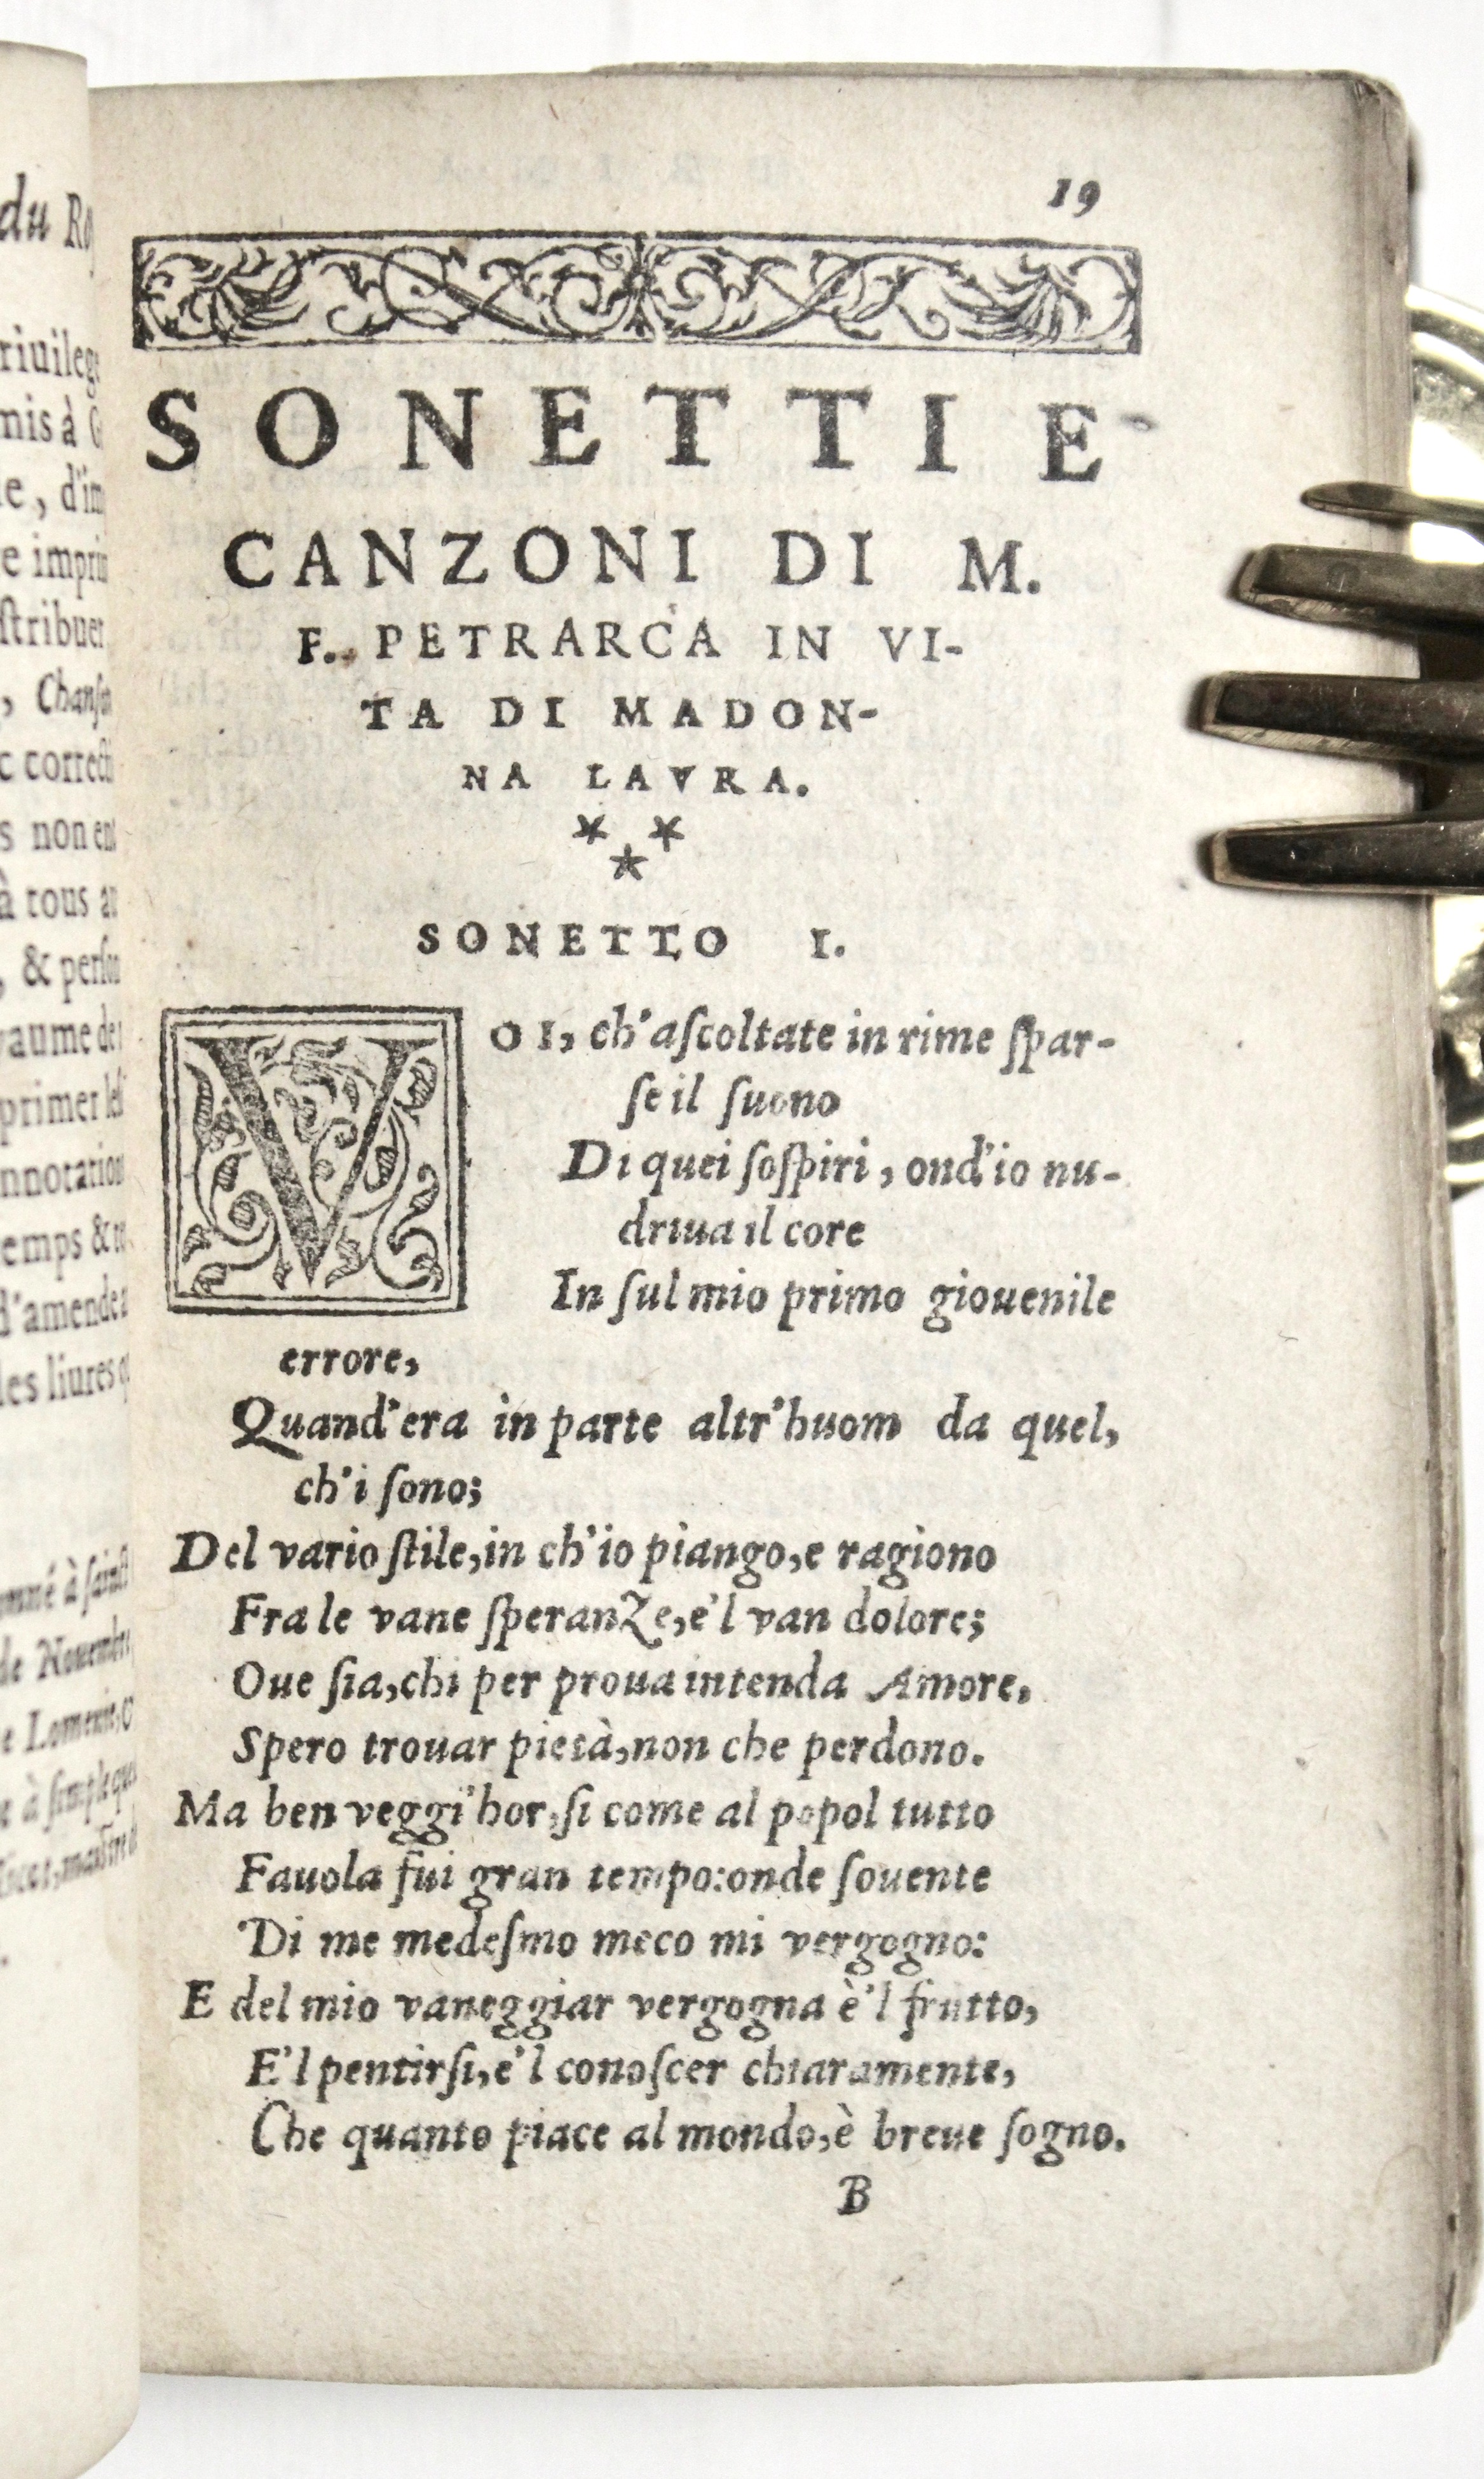 du
riuileg
mis à
e, d'im
e impri
ſtribuer
, Chanſon
c correcti
s non ent
à tous
, & perſon
yaume de
primer leſ
nnotation
emps &
d'amende
les liures
onné à ſainct
de Nouembre
e Lomenie,
e à ſimple que
19
SONETTI E
CANZONI DI M.
F. PETRARCA IN VI-
TA DI MADON-
NA LAVRA.
* *
*
SONETTO I.
VOI, ch'aſcoltate in rime ſpar-
ſe il ſuono
Di quei ſoſpiri, ond'io nu-
driua il core
In ſul mio primo giouenile
errore,
Quand'era in parte altr'huom da quel,
ch'i ſono;
Del vario ſtile,in ch'io piango,e ragiono
Fra le vane ſperanze,e'l van dolore;
Oue ſia,chi per proua intenda Amore,
Spero trouar pietà,non che perdono.
Ma ben veggi'hor,ſi come al popol tutto
Fauola fui gran tempo:onde ſouente
Di me medeſmo meco mi vergogno:
E del mio vaneggiar vergogna è'l frutto,
E'l pentirſi,e'l conoſcer chiaramente,
Che quanto piace al mondo,è breue ſogno.
B